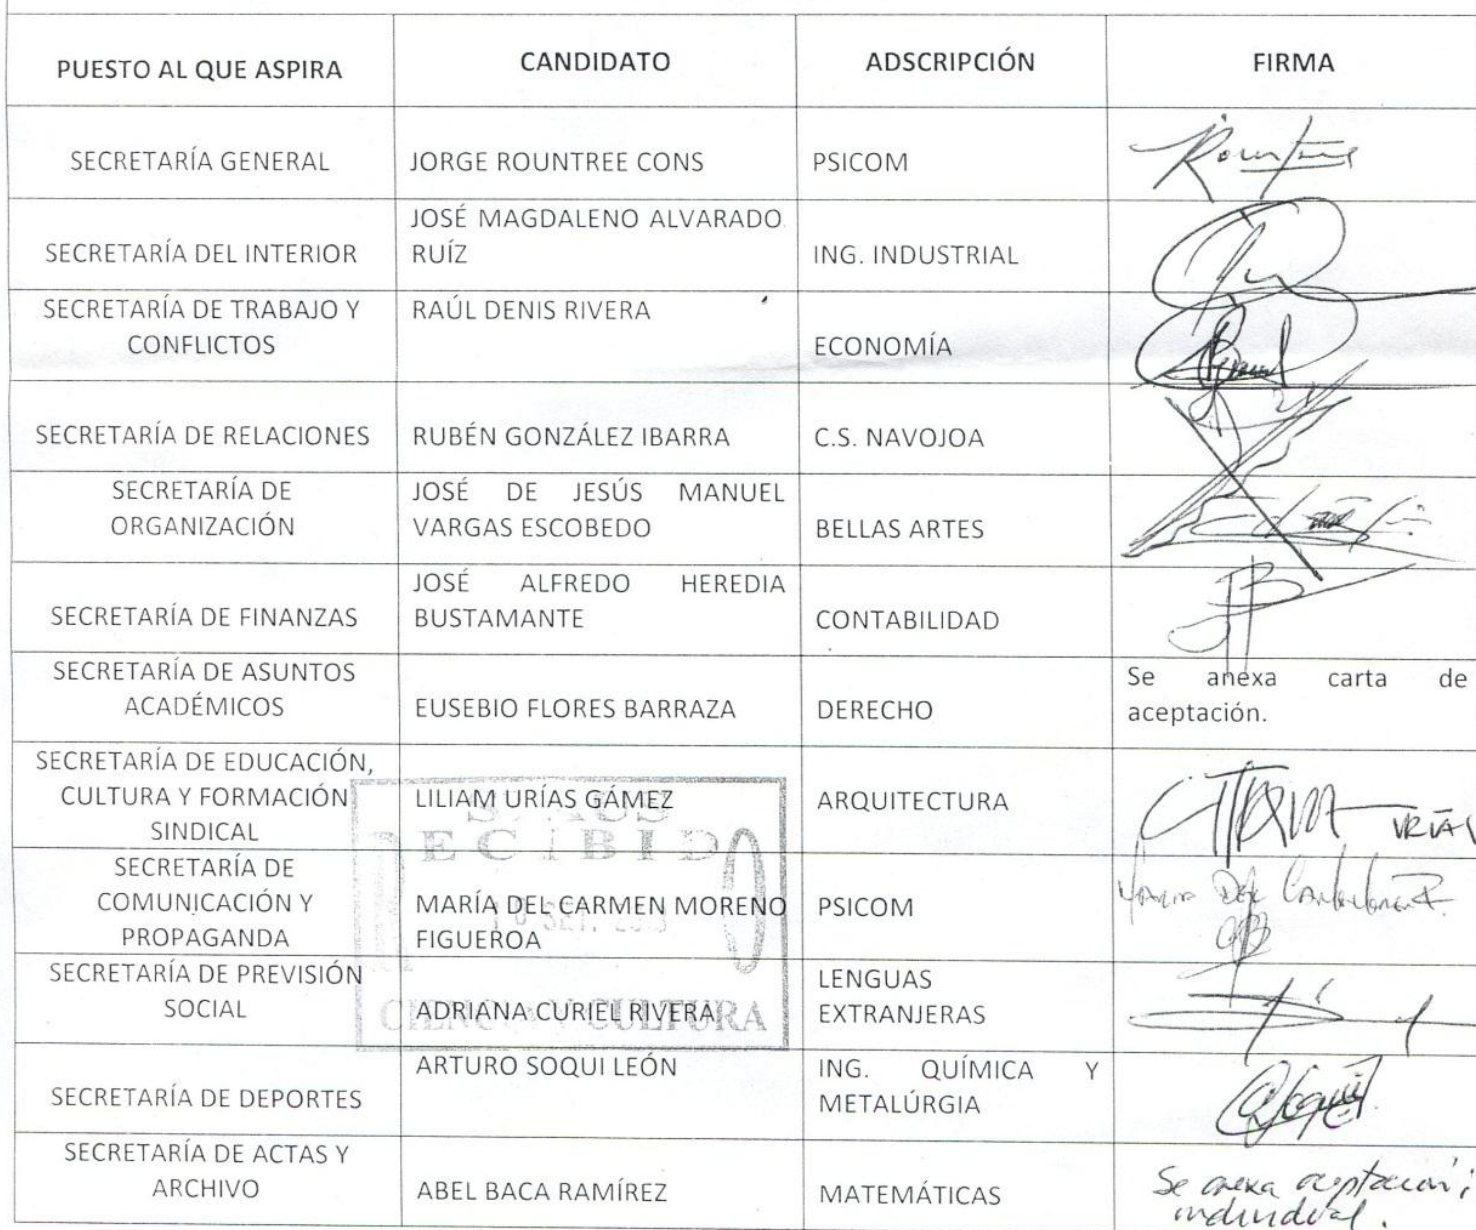 PUESTO AL QUE ASPIRA
CANDIDATO
ADSCRIPCIÓN
FIRMA
SECRETARÍA GENERAL
JORGE ROUNTREE CONS
PSICOM
Rountree
SECRETARÍA DEL INTERIOR
JOSÉ MAGDALENO ALVARADO
RUÍZ
ING. INDUSTRIAL
SECRETARÍA DE TRABAJO Y
CONFLICTOS
RAÚL DENIS RIVERA
ECONOMÍA
SECRETARÍA DE RELACIONES
RUBÉN GONZÁLEZ IBARRA
C.S. NAVOJOA
SECRETARÍA DE
ORGANIZACIÓN
JOSÉ DE JESÚS MANUEL
VARGAS ESCOBEDO
BELLAS ARTES
SECRETARÍA DE FINANZAS
JOSÉ ALFREDO HEREDIA
BUSTAMANTE
CONTABILIDAD
SECRETARÍA DE ASUNTOS
ACADÉMICOS
EUSEBIO FLORES BARRAZA
DERECHO
Se anexa carta de
aceptación.
SECRETARÍA DE EDUCACIÓN,
CULTURA Y FORMACIÓN
SINDICAL
LILIAM URÍAS GÁMEZ
ARQUITECTURA
URÍAS
SECRETARÍA DE
COMUNICACIÓN Y
PROPAGANDA
MARÍA DEL CARMEN MORENO
FIGUEROA
PSICOM
SECRETARÍA DE PREVISIÓN
SOCIAL
ADRIANA CURIEL RIVERA
LENGUAS
EXTRANJERAS
SECRETARÍA DE DEPORTES
ARTURO SOQUI LEÓN
ING. QUÍMICA Y
METALÚRGIA
SECRETARÍA DE ACTAS Y
ARCHIVO
ABEL BACA RAMÍREZ
MATEMÁTICAS
Se anexa aceptación
individual.
RECIBIDO
CULTURA